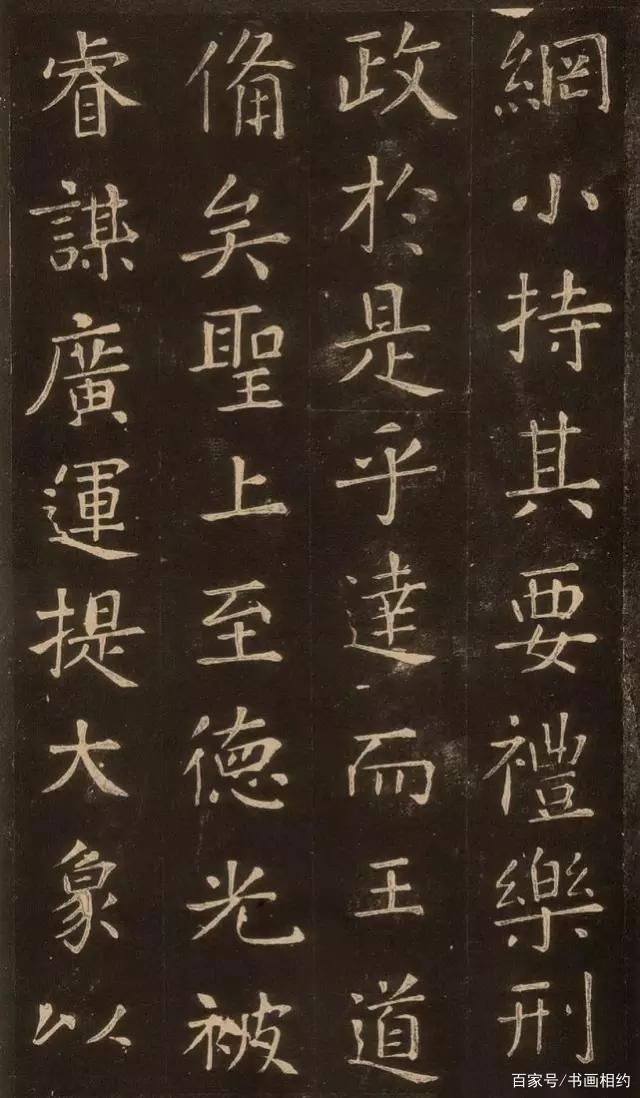 網小持其要禮樂刑
政於是乎達而王道
備矣聖上至德光被
睿謀廣運提大象以
百家号/书画相约